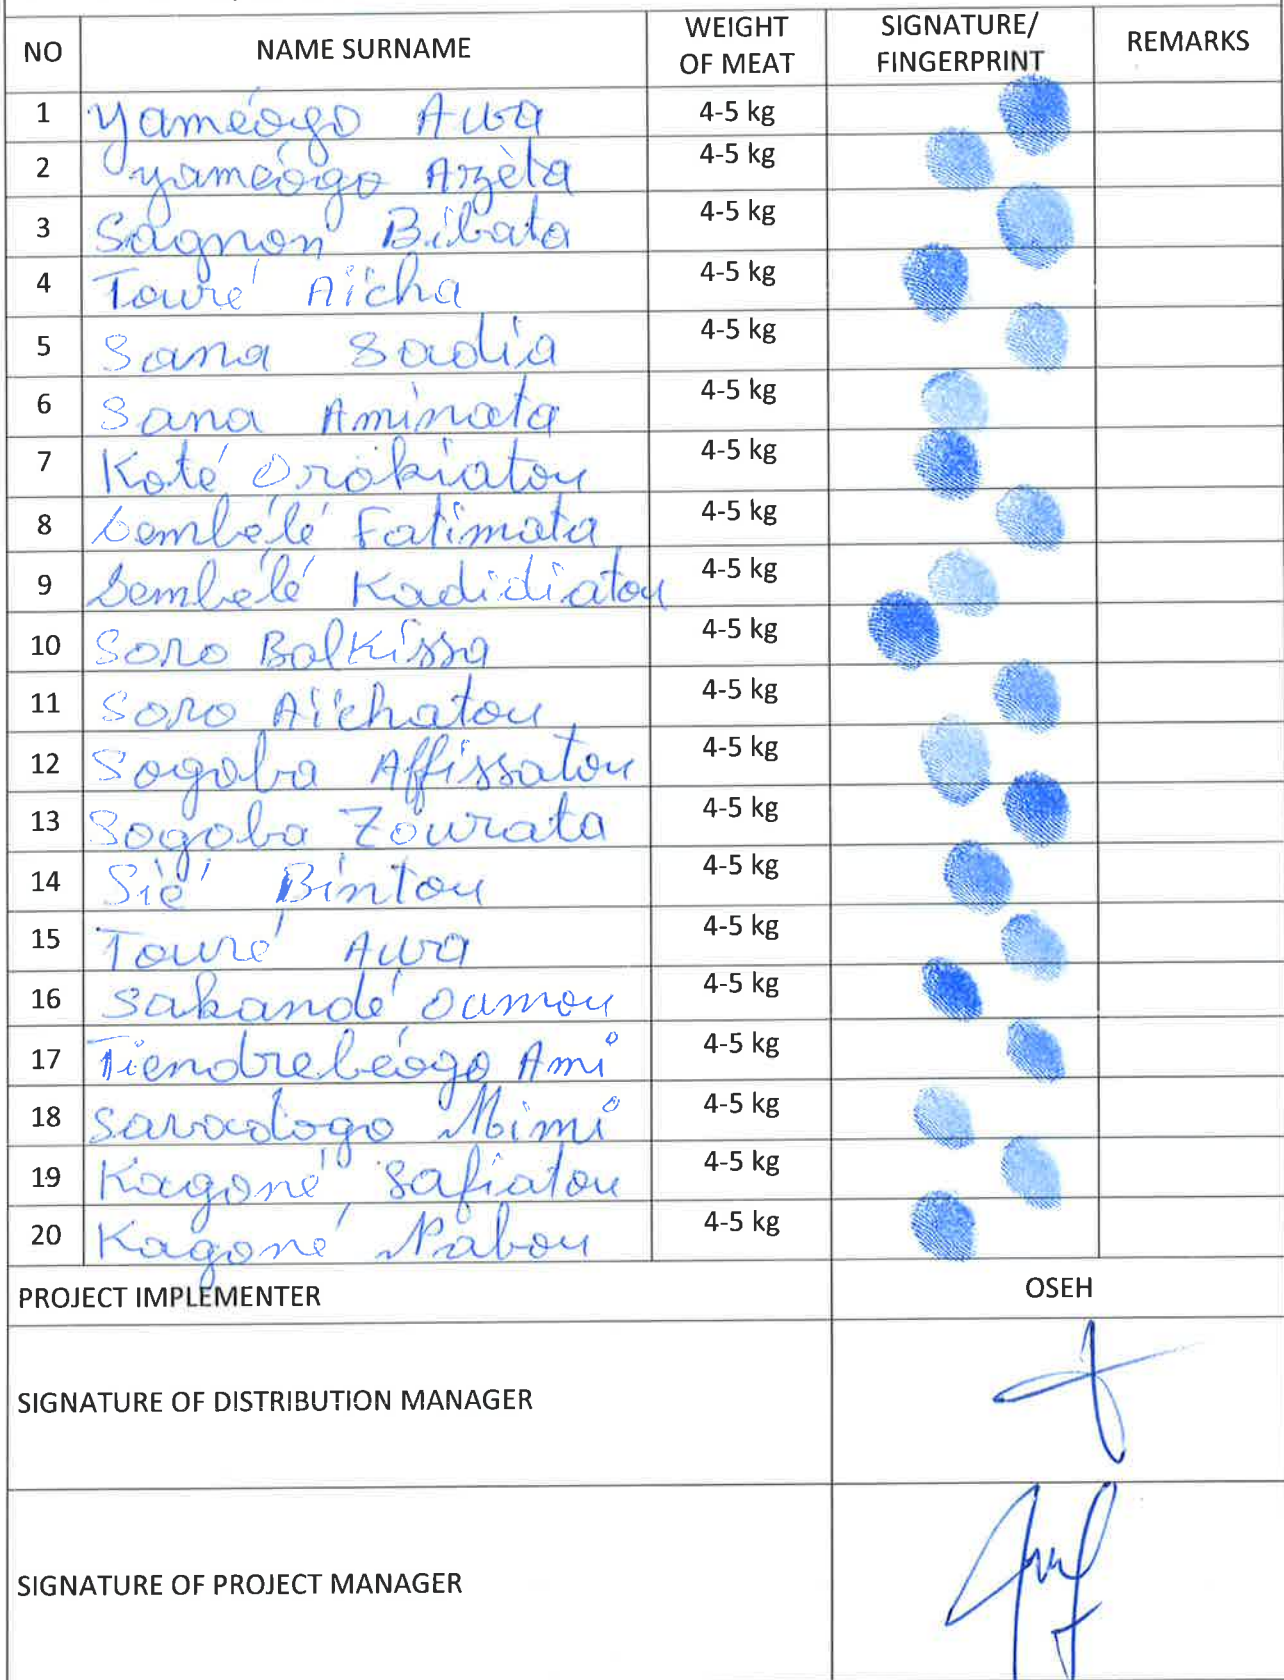 NO NAME SURNAME WEIGHT OF MEAT SIGNATURE/ FINGERPRINT REMARKS
1 Yaméogo Awa 4-5 kg
2 yaméogo Azèta 4-5 kg
3 Sagnon Bibata 4-5 kg
4 Touré Aïcha 4-5 kg
5 Sana Sadia 4-5 kg
6 Sana Aminata 4-5 kg
7 Koté Orokiatou 4-5 kg
8 Sembélé Fatimata 4-5 kg
9 Sembélé Kadidiatou 4-5 kg
10 Soro Balkissa 4-5 kg
11 Soro Aïchatou 4-5 kg
12 Sogoba Affissatou 4-5 kg
13 Sogoba Zourata 4-5 kg
14 Sié Bintou 4-5 kg
15 Touré Awa 4-5 kg
16 Sakandé Oumou 4-5 kg
17 Tiendrebéogo Ami 4-5 kg
18 Savadogo Mimi 4-5 kg
19 Kagoné Safiatou 4-5 kg
20 Kagoné Nabou 4-5 kg
PROJECT IMPLEMENTER OSEH
SIGNATURE OF DISTRIBUTION MANAGER
SIGNATURE OF PROJECT MANAGER